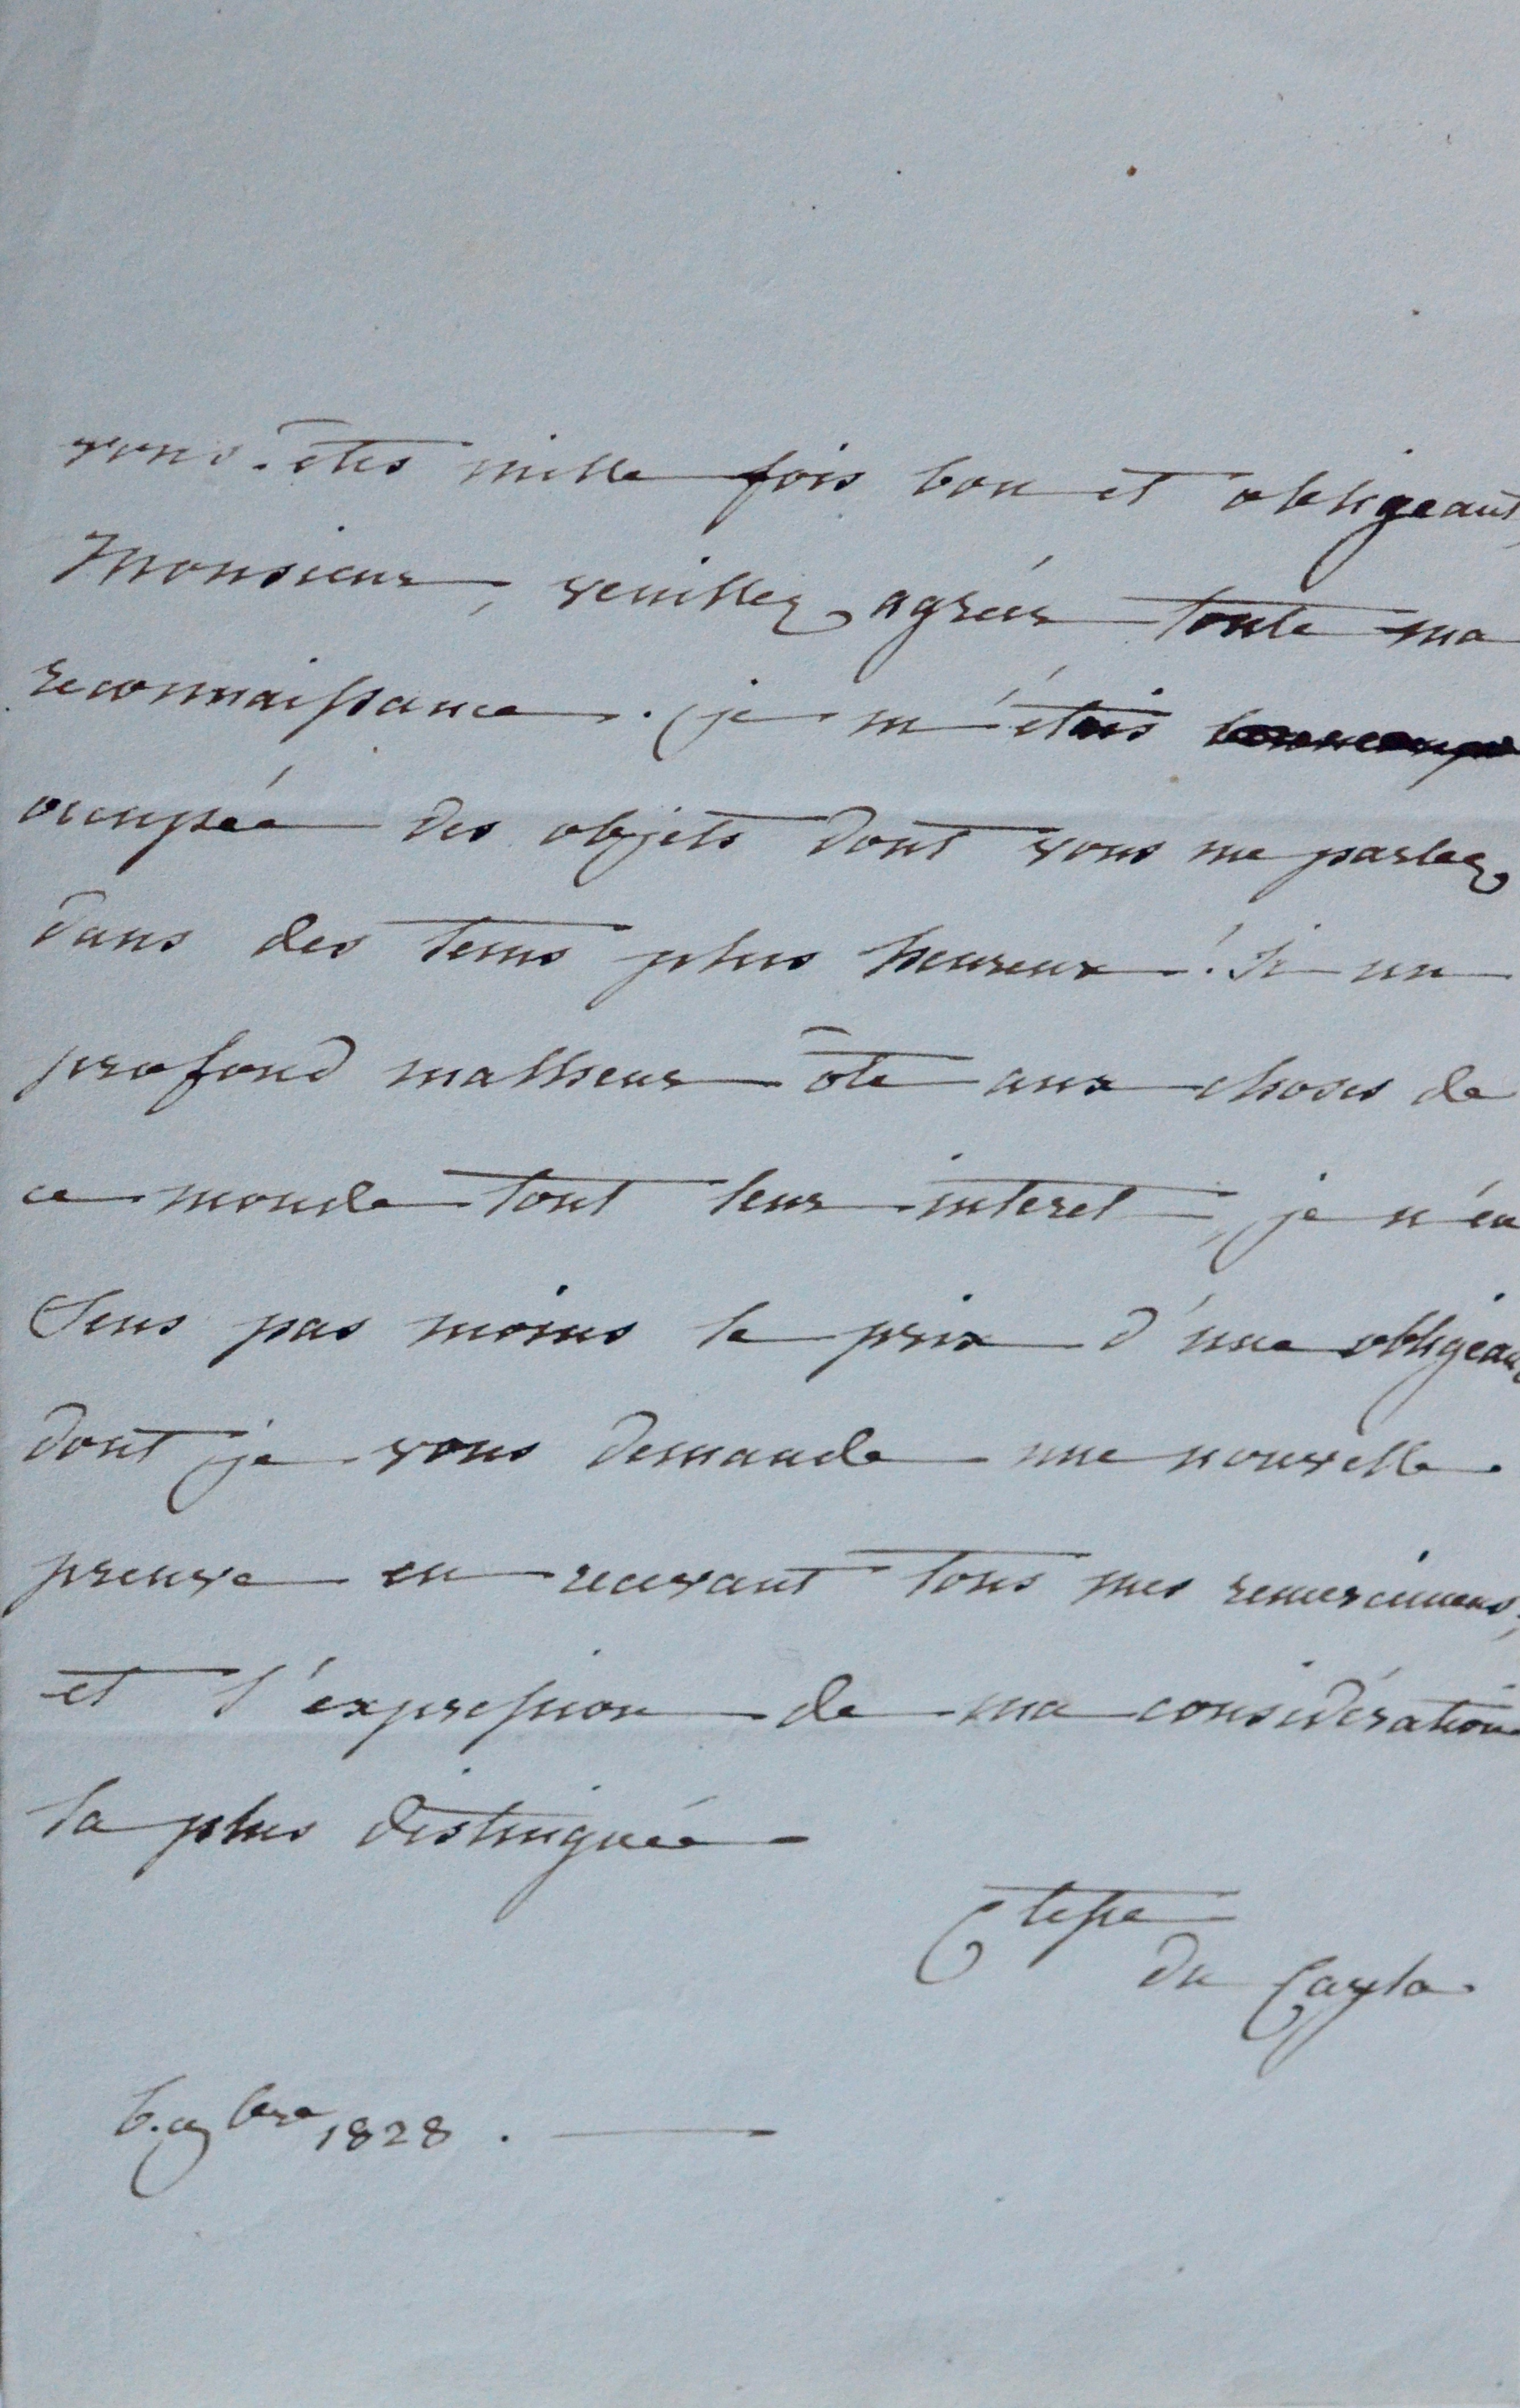 vous êtes mille fois bon et obligeant,
Monsieur, veuillez agréer toute ma
reconnaissance. je m'étais beaucoup
occupée des objets dont vous me parlez
dans des tems plus heureux! Si un
profond malheur ôte aux choses de
ce monde tout leur interet, je n'en
Sens pas moins le prix d'une obligeance
dont je vous demande une nouvelle
preuve en recevant tous mes remerciemens,
et l'expression de ma considération
la plus distinguée
Ctesse
du Cayla
bre 1828.